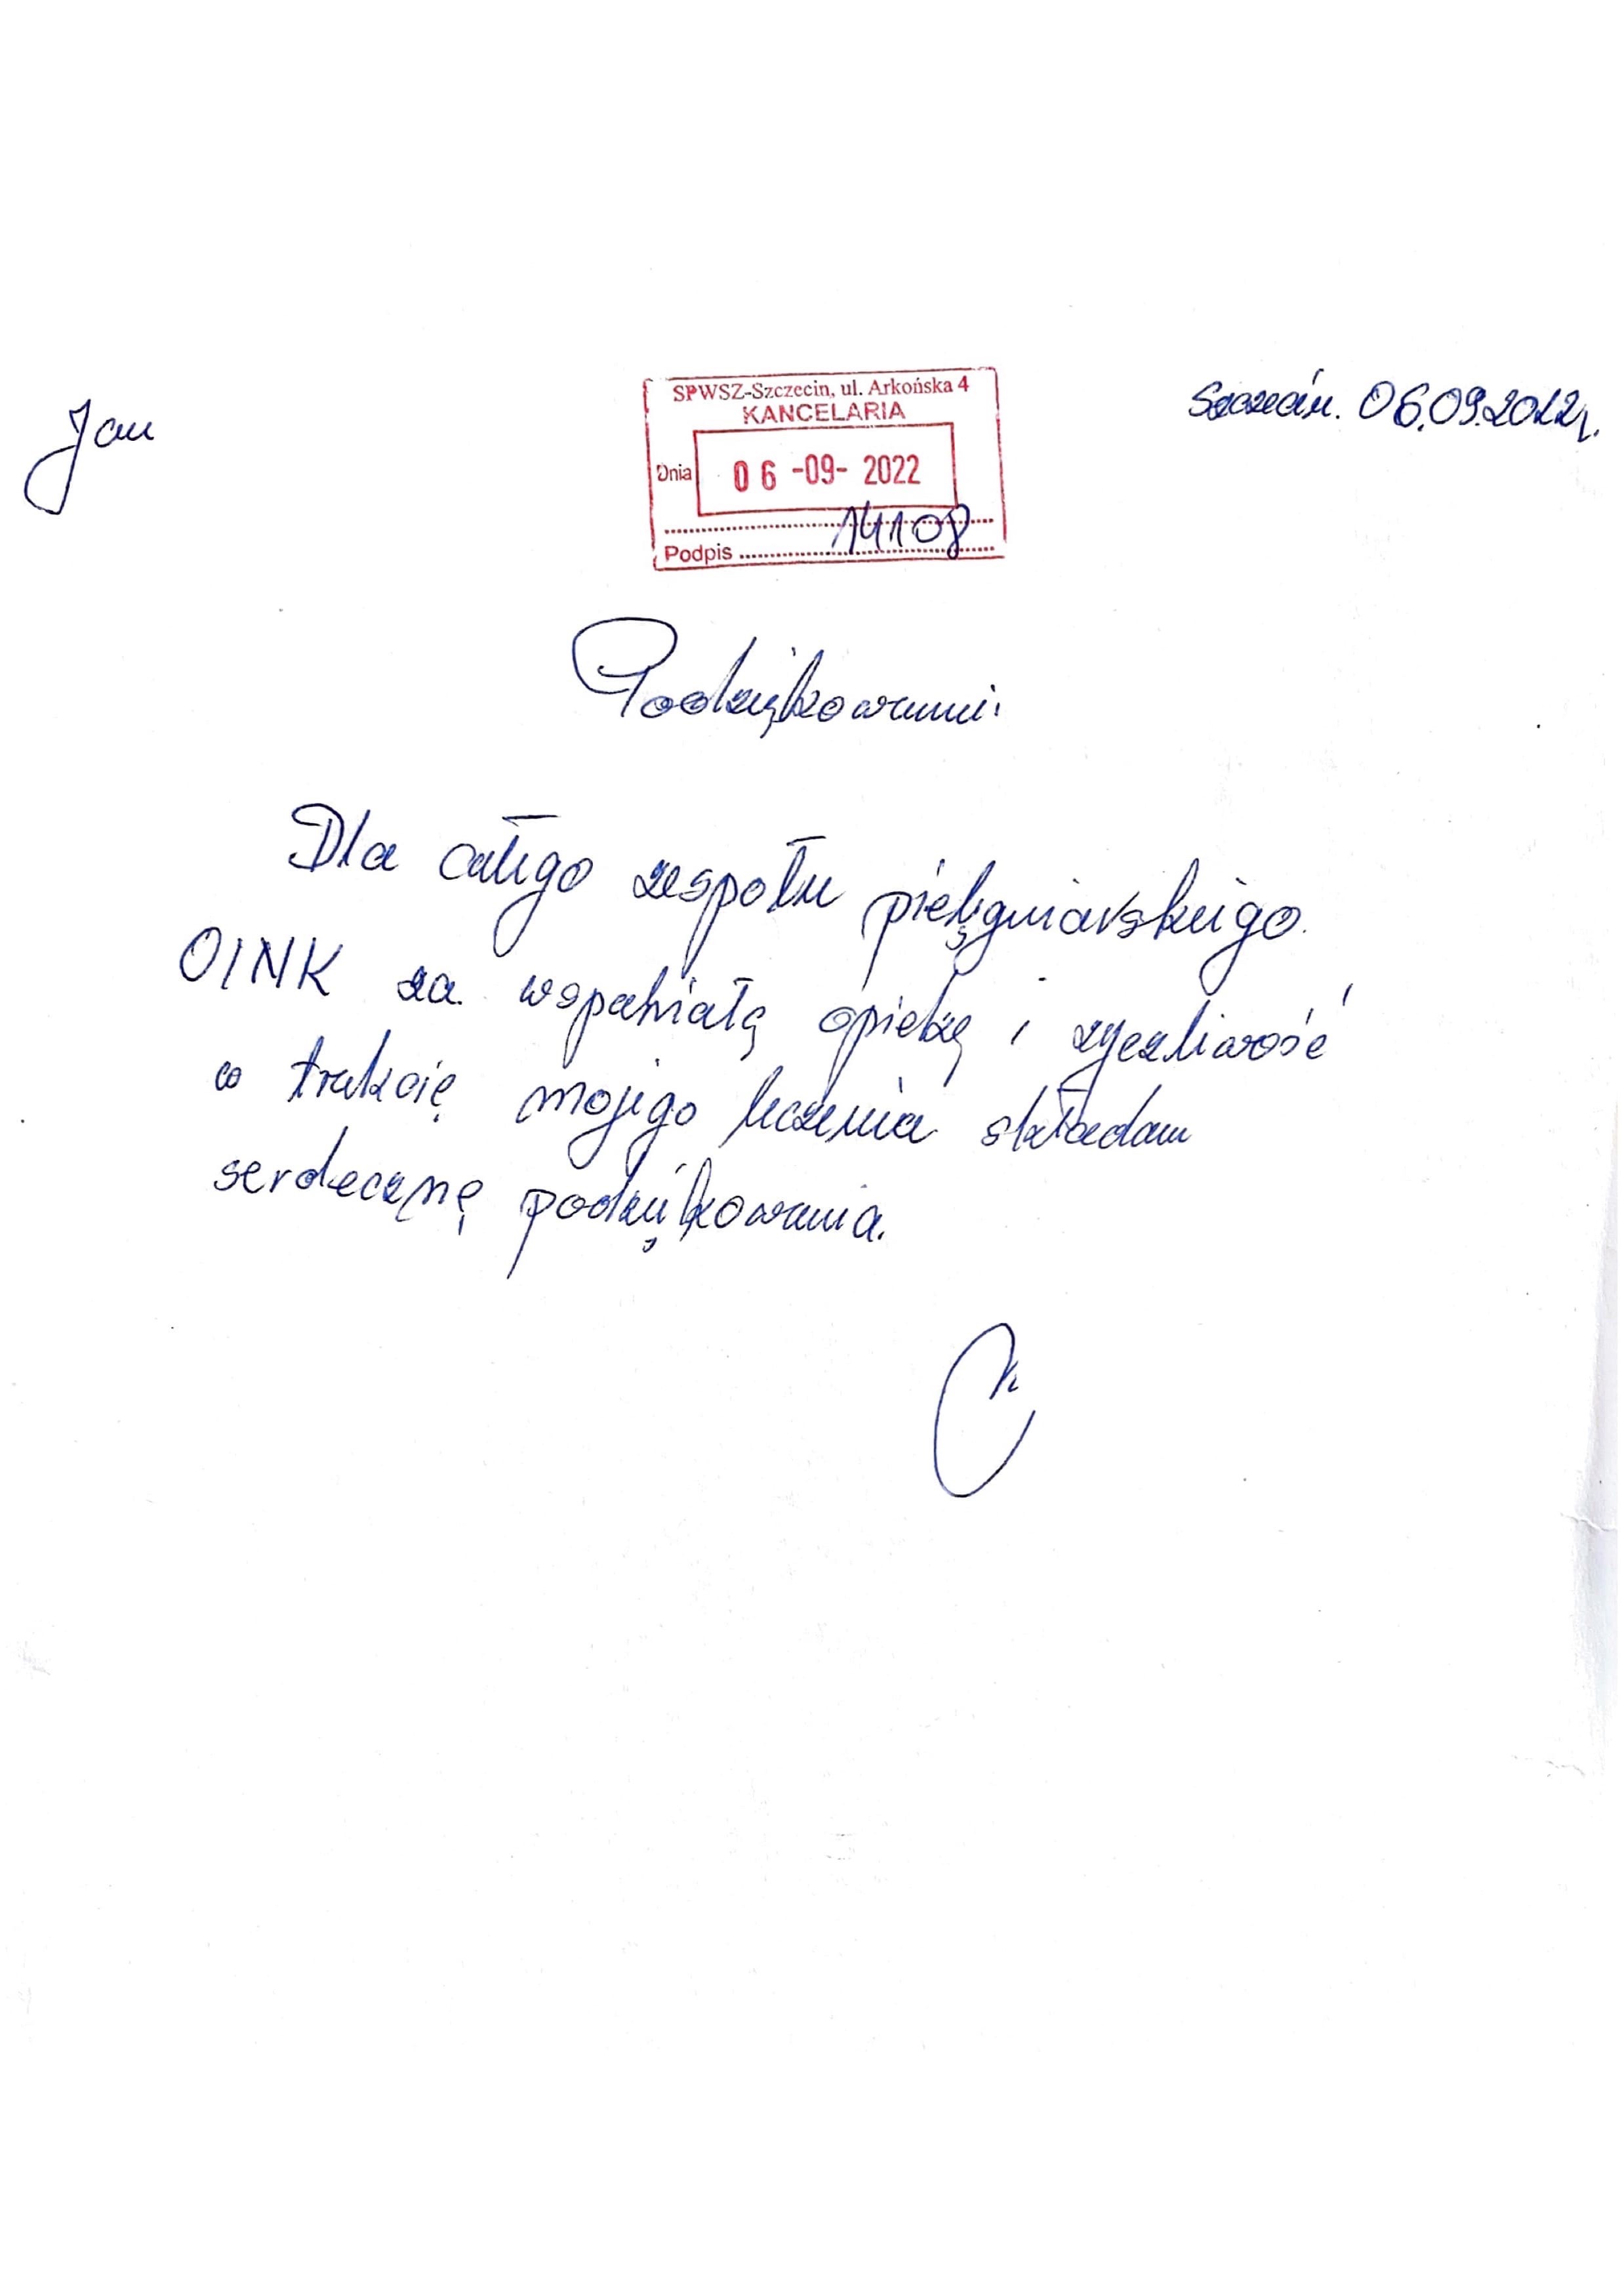 Jan
SPWSZ-Szczecin, ul. Arkońska 4
KANCELARIA
Dnia 06 -09- 2022
14108
Podpis
Szczecin. 06.09.2022r.
Podziękowanie.
Dla całego zespołu pielęgniarskiego.
OINK za wspaniałą opiekę i życzliwość
w trakcię mojego leczenia składam
serdecznę podziękowania.